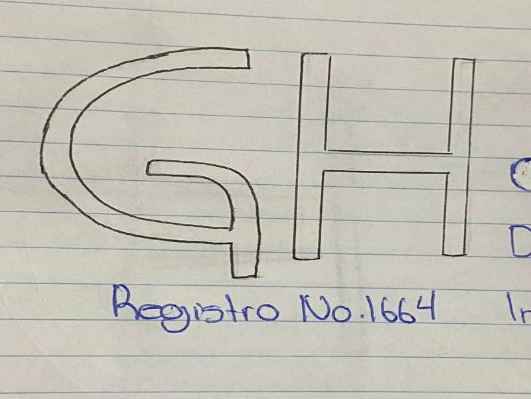 GH
Registro No.1664